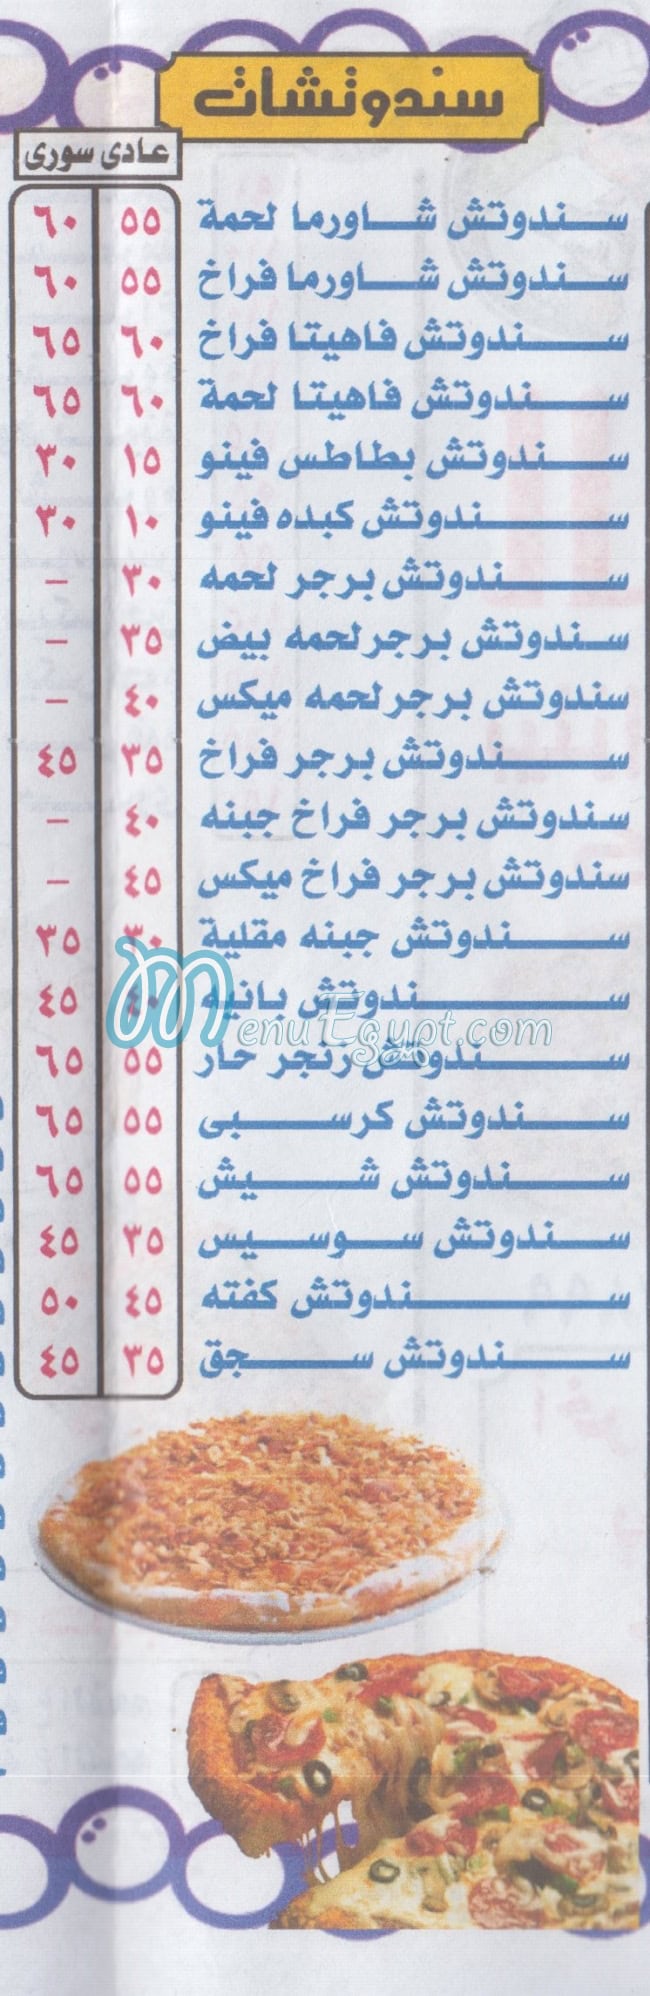 سندوتشات
عادى سورى
سندوتش شاورما لحمة ٥٥ ٦٠
سندوتش شاورما فراخ ٥٥ ٦٠
سندوتش فاهيتا فراخ ٦٠ ٦٥
سندوتش فاهيتا لحمة ٦٠ ٦٥
سندوتش بطاطس فينو ١٥ ٣٠
سندوتش كبده فينو ١٠ ٣٠
سندوتش برجر لحمه ٣٠ –
سندوتش برجر لحمه بيض ٣٥ –
سندوتش برجر لحمه ميكس ٤٠ –
سندوتش برجر فراخ ٣٥ ٤٥
سندوتش برجر فراخ جبنه ٤٠ –
سندوتش برجر فراخ ميكس ٤٥ –
سندوتش جبنه مقلية ٣٠ ٣٥
سندوتش بانيه ٤٠ ٤٥
MenuEgypt.com
سندوتش رنجر حار ٥٥ ٦٥
سندوتش كرسبى ٥٥ ٦٥
سندوتش شيش ٥٥ ٦٥
سندوتش سوسيس ٣٥ ٤٥
سندوتش كفته ٤٥ ٥٠
سندوتش سجق ٣٥ ٤٥